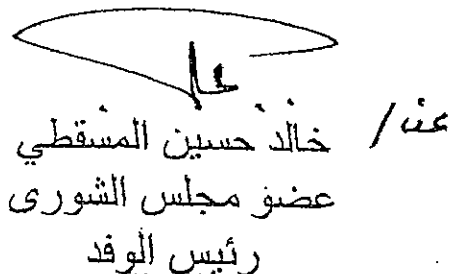 عنه / خالد حسين المسقطي
عضو مجلس الشورى
رئيس الوفد